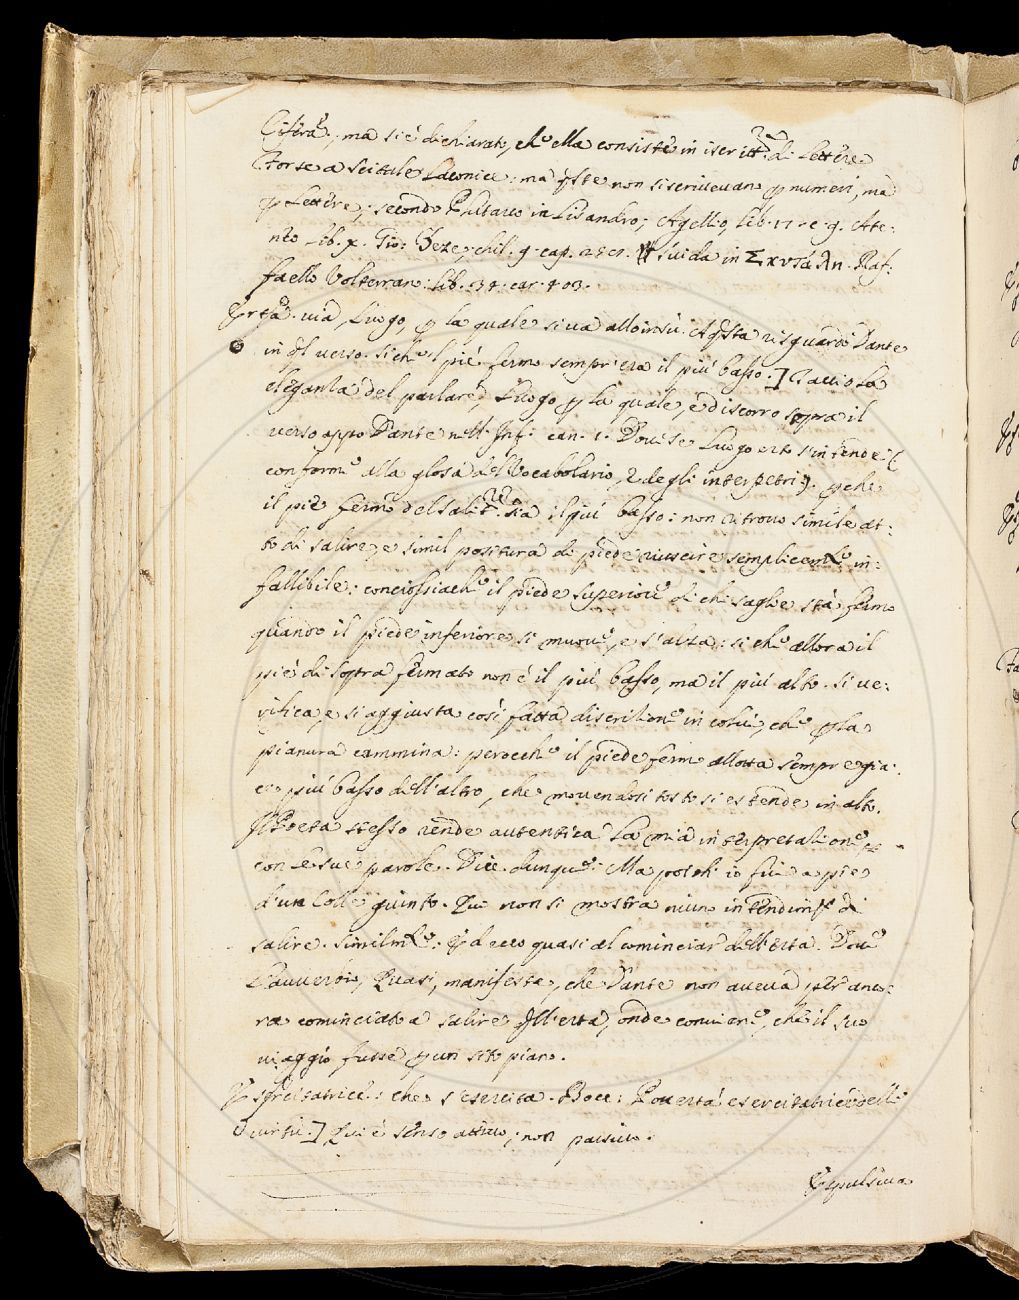 Cifera, ma si è dichiarato, che ella consiste in iscritt.ra di Lettere
Torte a Scitale Laconice: ma q̃ste non si scriveuano ꝑ numeri, ma
ꝑ Lettere; secondo Plutarco in Lisandro; Agellio, lib. 17. c. 9. Ate:
neo Lib. x. Gio: Zeze, chil. 9. cap. 258. Suida in Σκυτάλη. Raf:
faello Volterrano: lib. 34. car. 403.
Erta. via, Luogo, ꝑ la quale si va allo insù. A q̃sta risguardò Dante
in q̃l verso. Sich' l piè fermo sempr' era il più basso.] Taccio la
eleganza del parlare, Luogo ꝑ la quale, e discorro sopra il
verso appo Dante nell' Inf: can. 1. Doue se Luogo erto s'intende (
conforme alla glosa del Vocabolario, e degli interpetri). ꝑche
il piè fermo del salit.re sia il più basso: non ritrovo simile at:
to di salire, e simil positura di piede riuscire semplicem.te in:
fallibile: conciossiache il piede superiore di chi saglie stà fermo
quando il piede inferiore si muoue, e s'alza: si che allora il
piè di sopra fermato non è il più basso, ma il più alto. Si ve:
rifica, e si aggiusta così fatta discrizione in colui, che ꝑ la
pianura cammina: perocche il piede fermo allotta sempre gia:
ce più basso dell'altro, che movendosi tosto si estende in alto.
Il Poeta stesso rende autentica la mia interpretazione
con le sue parole. Dice dunque: Ma poi ch' io fui a piè
d'un Colle giunto. Qui non si mostra niuno intendim.to di
salire. Similm.te: Ed ecco quasi al cominciar dell'erta. Doue
l'auuerbio, Quasi, manifesta, che Dante non aueua per anco:
ra cominciato a salire Ill'erta, onde conviene, che il suo
viaggio fusse ꝑ un sito piano.
Esercitatrice: che s'esercita. Bocc: Pouertà esercitatrice dell.e
virtù.] Qui è senso attiuo; non passiuo.
Espulsiua